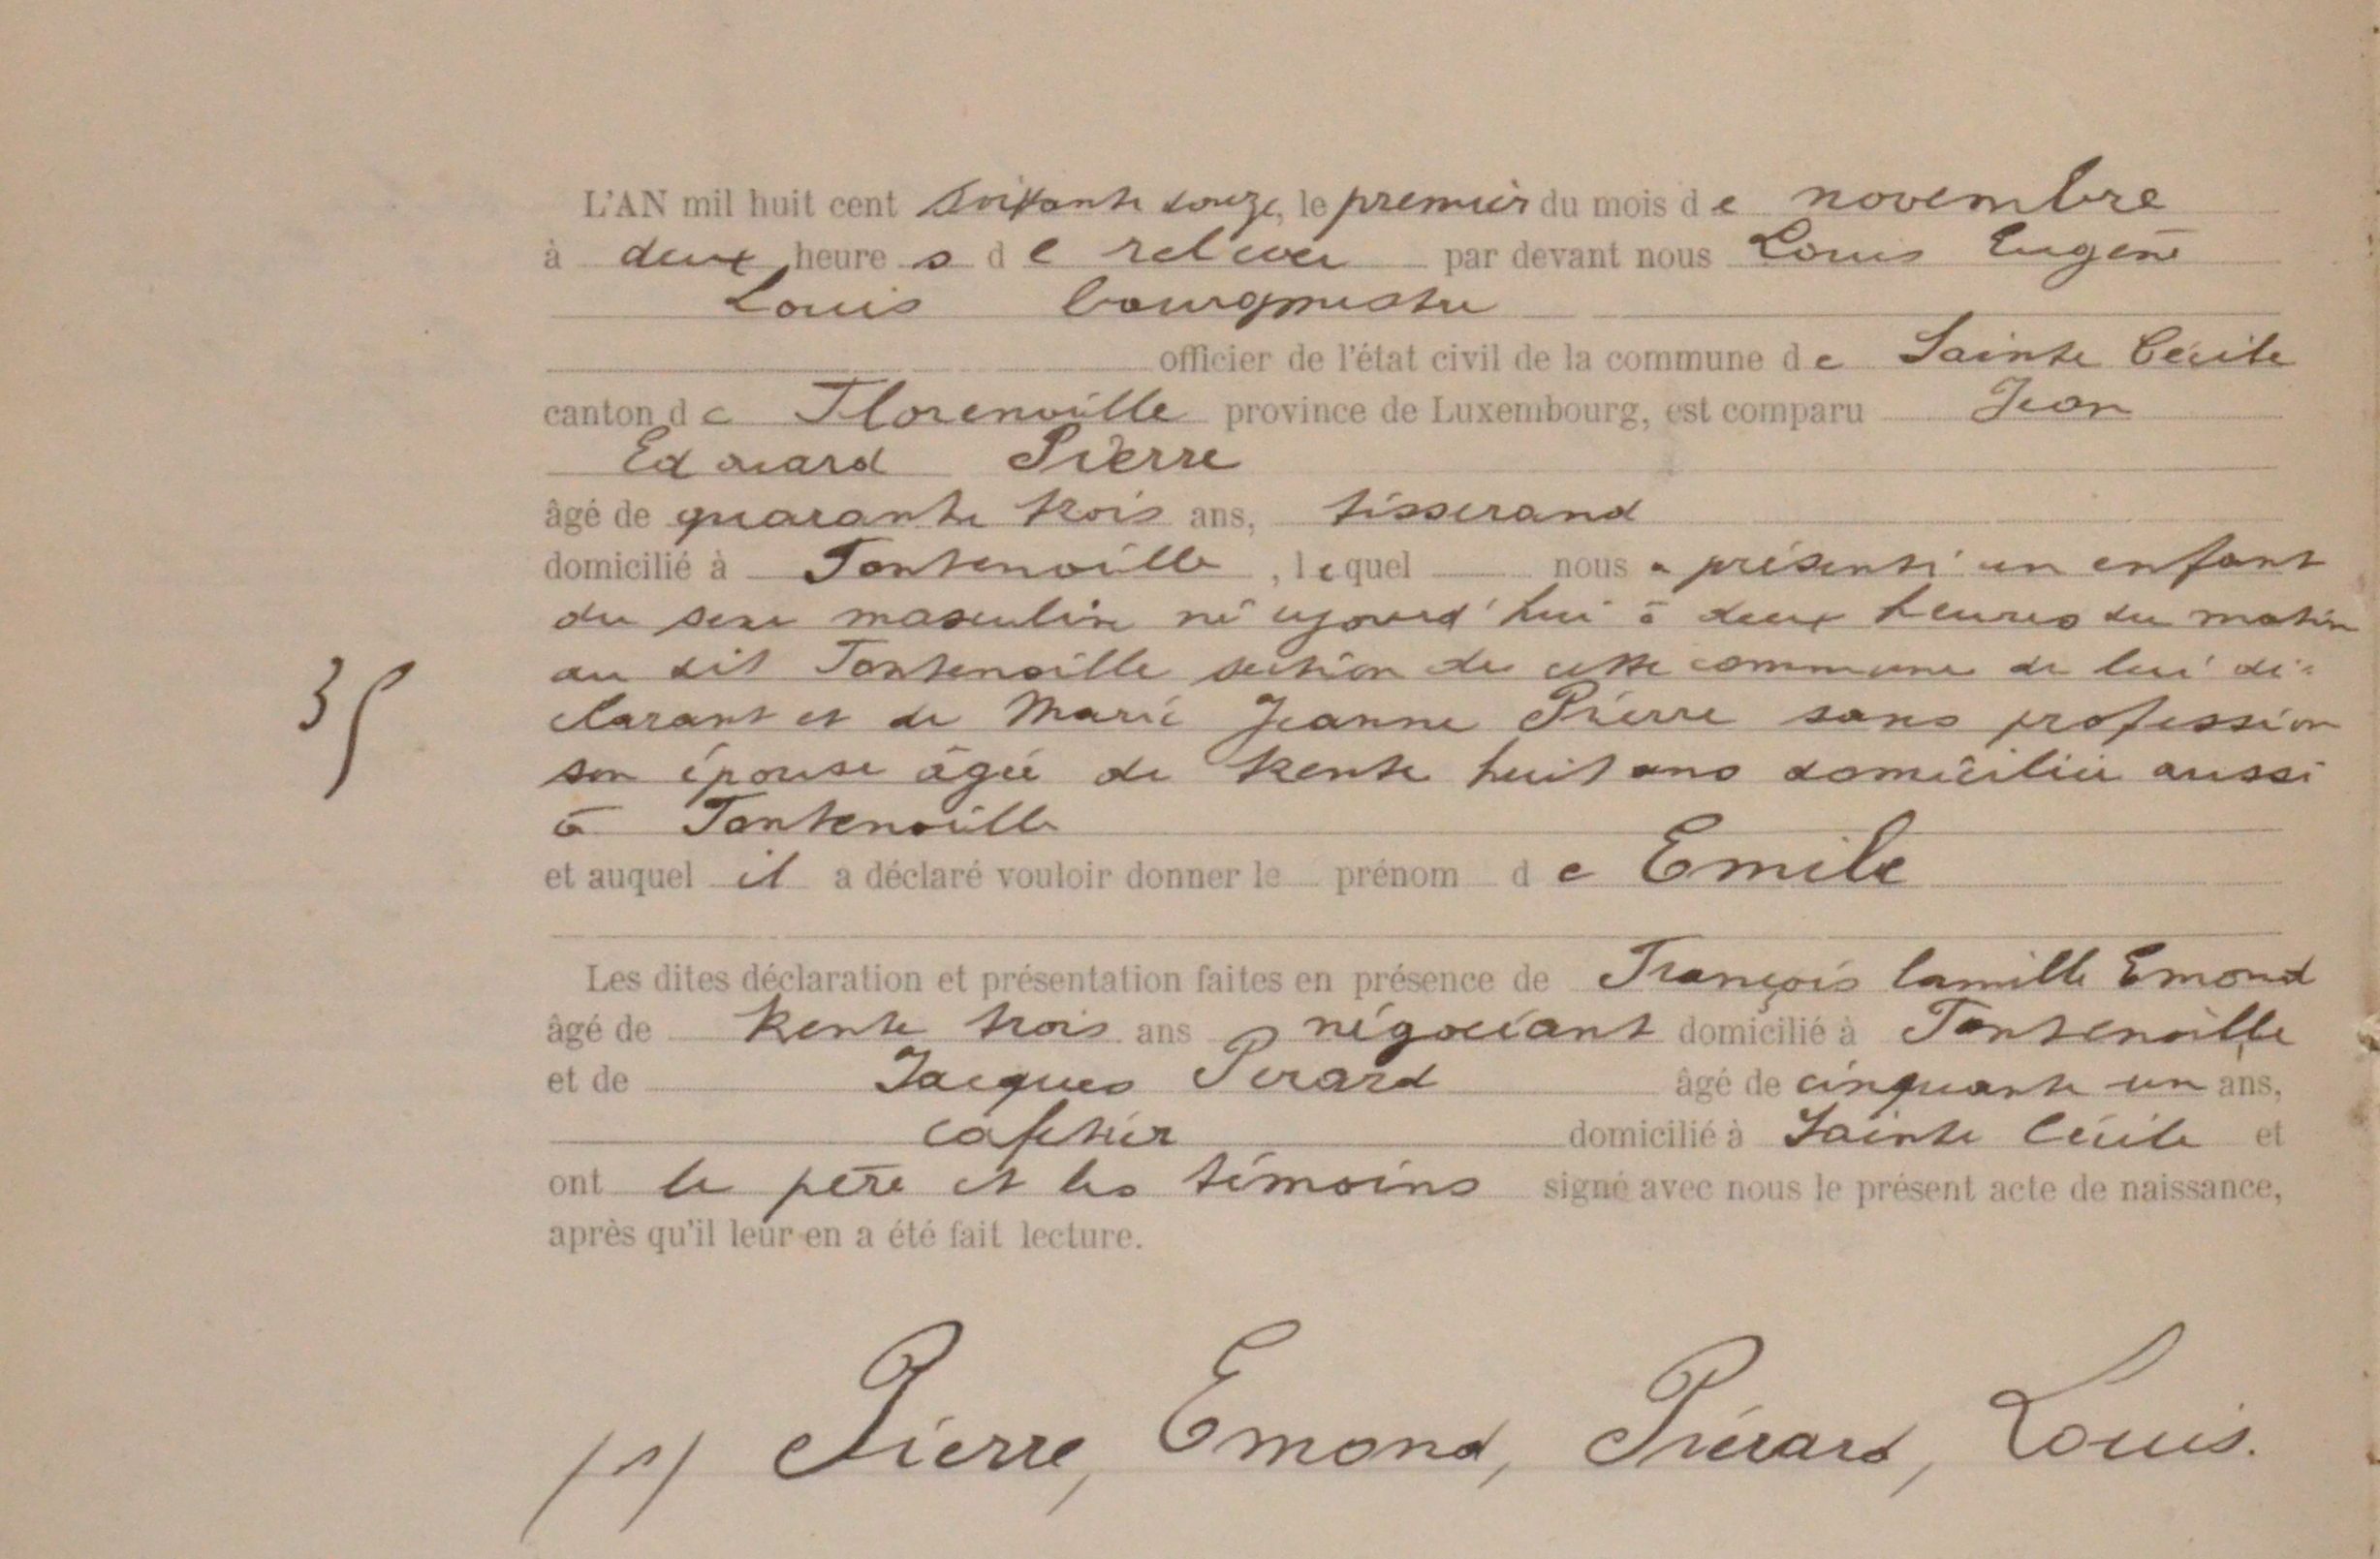 L'AN mil huit cent soixante douze, le premier du mois de novembre
à deux heures de relevée par devant nous Louis Eugène
Louis bourgmestre
officier de l'état civil de la commune de Sainte Cécile
canton de Florenville province de Luxembourg, est comparu Jean
Edouard Pierre
âgé de quarante trois ans, tisserand
domicilié à Fontenoille, lequel nous a présenté un enfant
du sexe masculin né ujourd'hui à deux heures du matin
au dit Fontenoille section de cette commune de lui dé-
clarant et de Marie Jeanne Pierre sans profession
35
son épouse âgée de trente huit ans domiciliée aussi
à Fontenoille
et auquel il a déclaré vouloir donner le prénom de Emile
Les dites déclaration et présentation faites en présence de François Camille Emond
âgé de trente trois ans négociant domicilié à Fontenoille
et de Jacques Perard âgé de cinquante un ans,
cafetier domicilié à Sainte Cécile et
ont le père et les témoins signé avec nous le présent acte de naissance,
après qu'il leur en a été fait lecture.
(s) Pierre, Emond, Piérard, Louis.